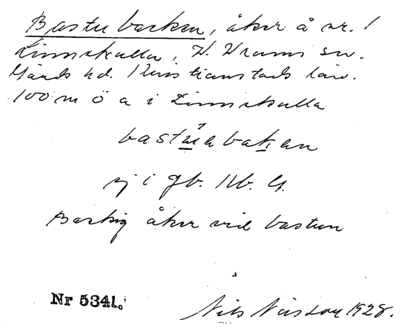 Bastubacken, åker å nr. 1
Linneskulla, V. Vrams sn.
Gärds hd. Kristianstads län.
100 m ö a i Linneskulla
bastubakan
ej i gb. Kb. G.
Backig åker vid bastun
Nr 5341.
Nils Nilsson 1928.